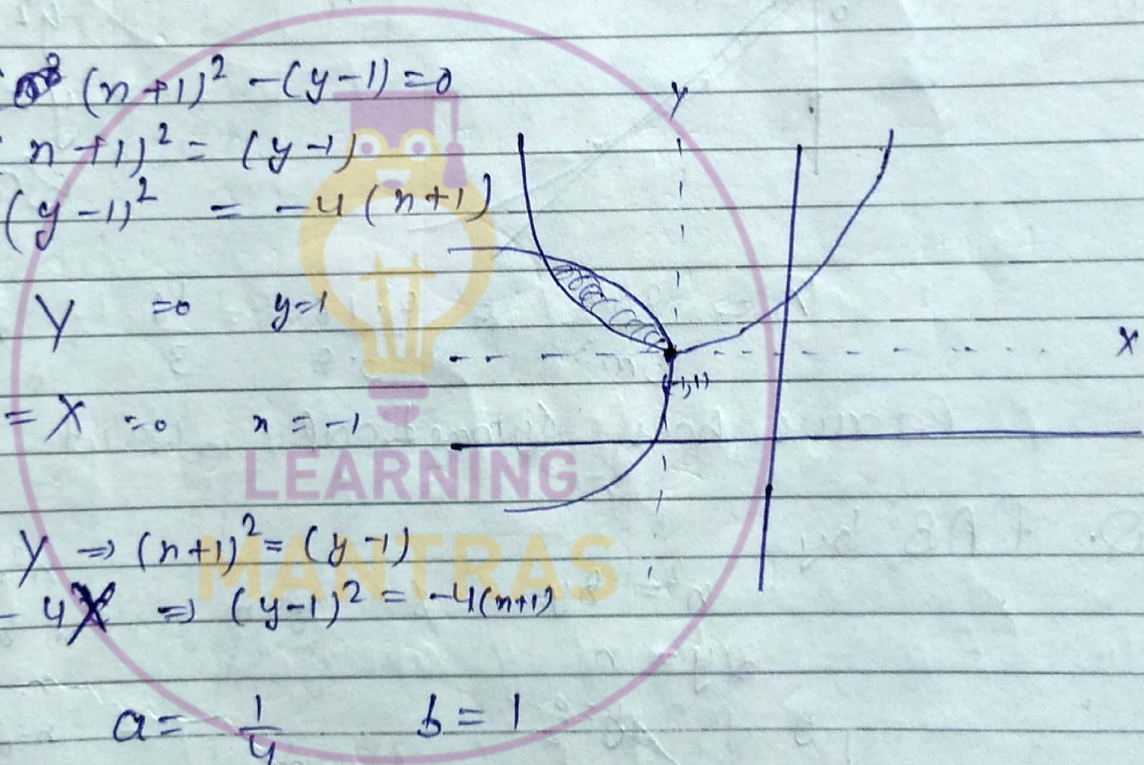 (n+1)² -(y-1)=0
n+1)² = (y-1)
(y-1)² = -4(n+1)
Y =0 y=1
= X =0 n = -1
Y ⇒ (n+1)² = (y-1)
- 4X ⇒ (y-1)² = -4(n+1)
a = 1/4 b = 1
Y
X
(-1,1)
LEARNING
MANTRAS